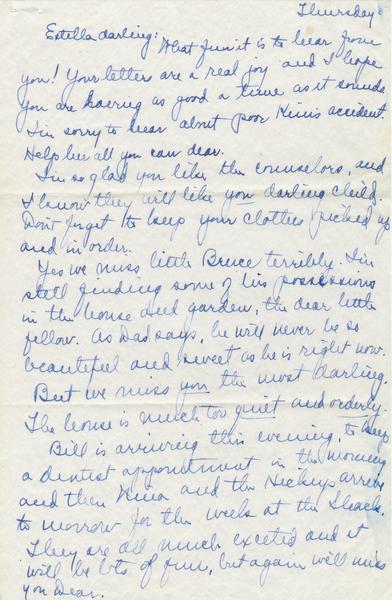 Thursday
Estella darling:
What fun it is to hear from
you! Your letter are a real joy and I hope
you are having as good a time as it sounds.
I'm sorry to hear about poor Kim's accident.
Help her all you can dear.
I'm so glad you like the counselors, and
I know they will like you darling child.
Don't forget to keep your clothes picked up
and in order.
Yes we miss little Bruce terribly. I'm
still finding some of his possessions
in the house and garden, the dear little
fellow. As Dad says, he will never be so
beautiful and sweet as he is right now.
But we miss you the most darling.
The house is much too quiet and orderly.
Bill is arriving this evening, to keep
a dentist appointment in the morning
and then and the Hickeys arrive
to morrow for the week at the Shack.
They are all much excited and it
will be lots of fun, but again we'll miss
you dear.